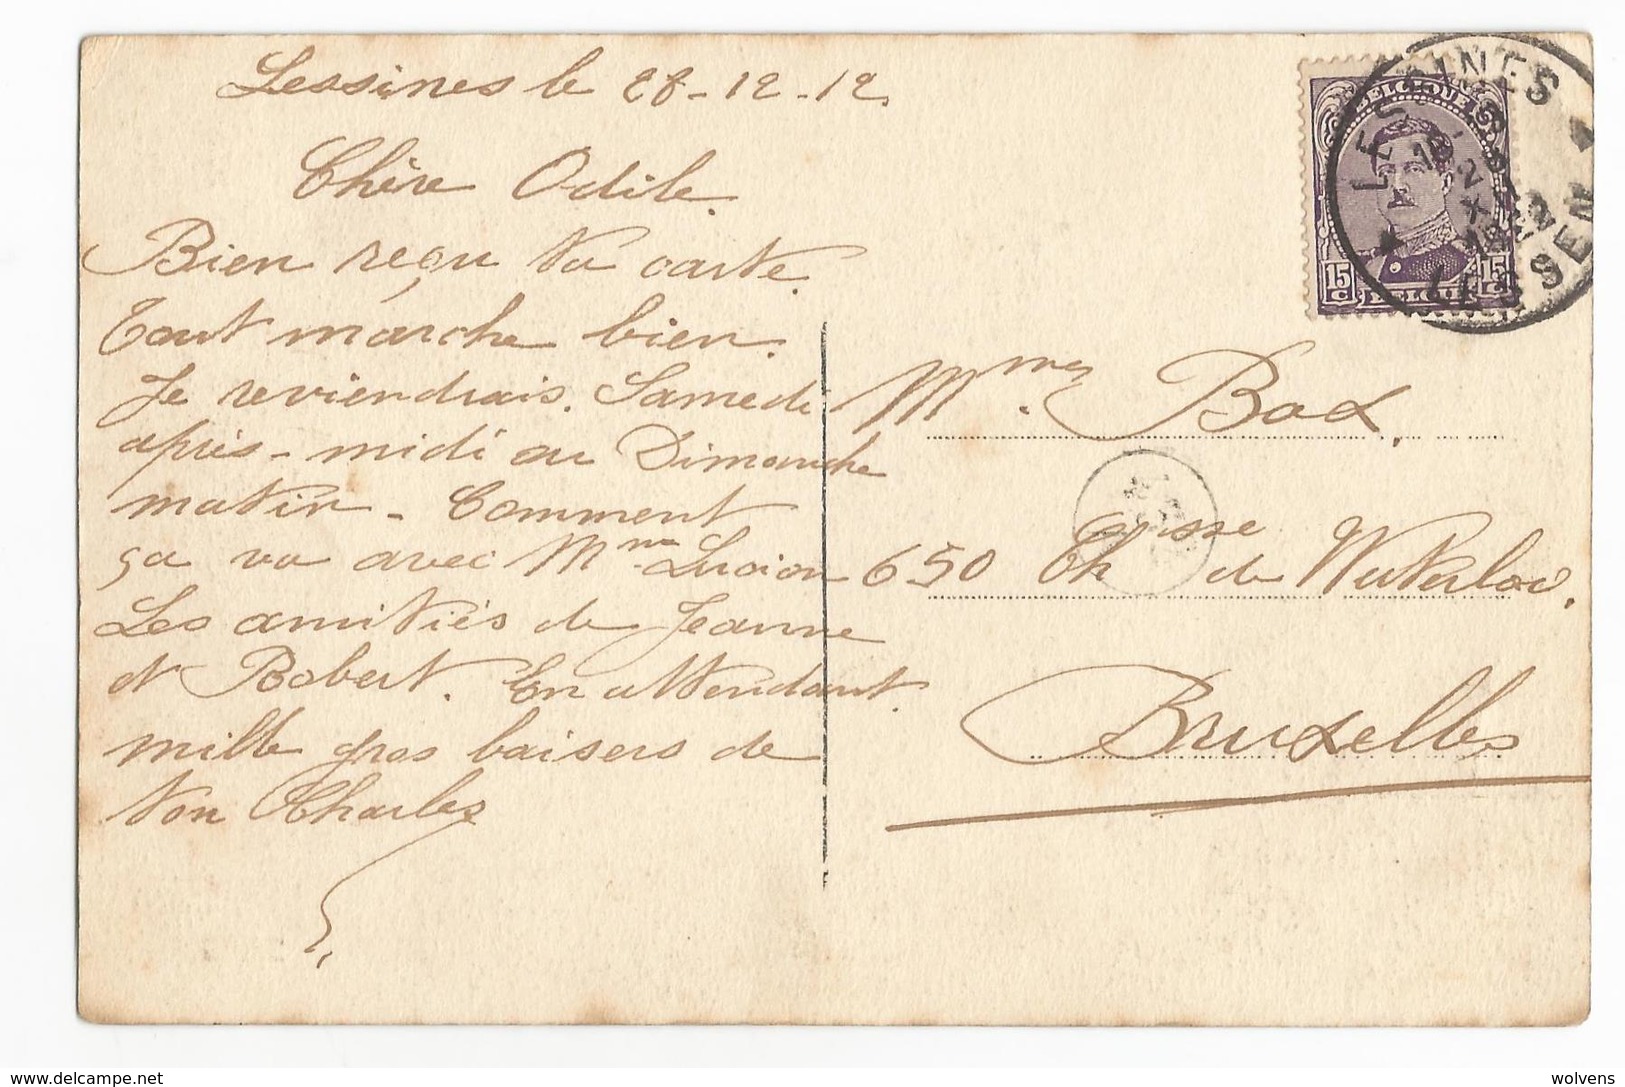 Lessines le 28-12-12
Chère Odile.
Bien reçu ta carte.
Tout marche bien.
Je reviendrais. Samedi
après-midi ou Dimanche
matin - Comment
ça va avec Mme Lucien
Les amitiés de Jeanne
et Robert. En attendant
mille gros baisers de
ton Charles
BELGIQUE
15 C 15 C
BELGIË
LESSINES
LESSEN
Mme. Bod.
650 Chaussée de Waterloo.
Bruxelles
www.delcampe.net
wolvens